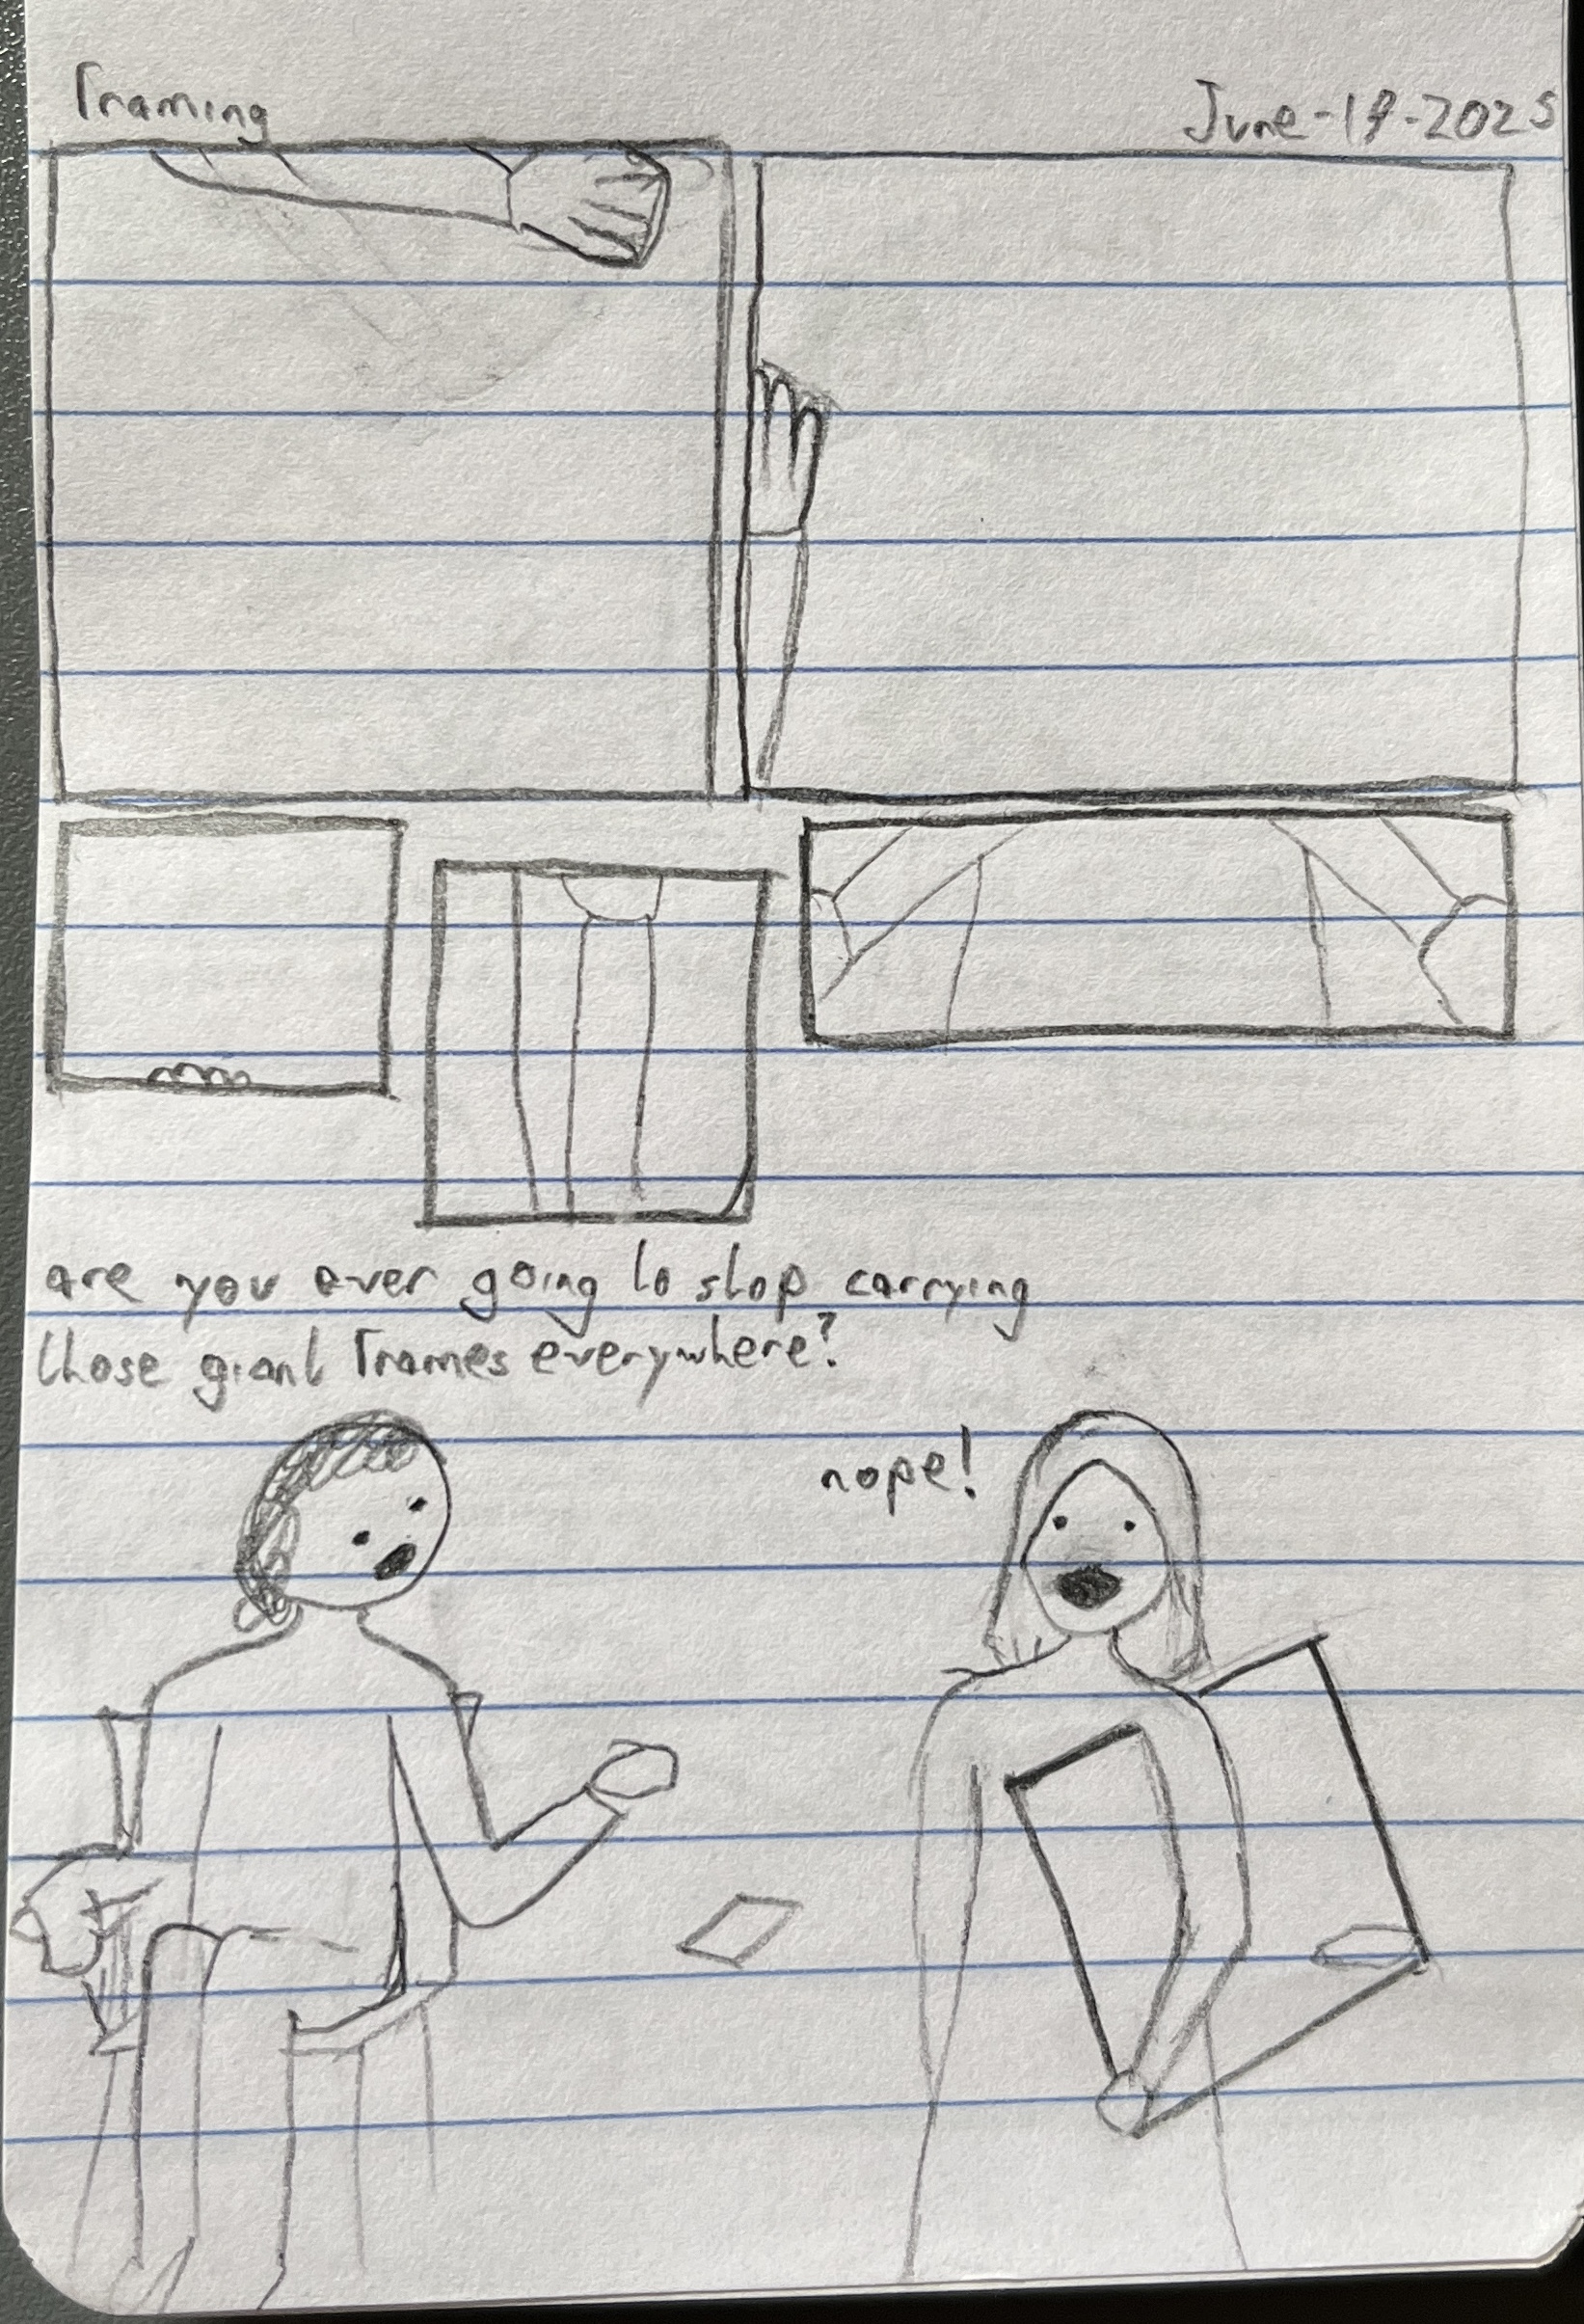 Framing
June-19-2025
are you ever going to stop carrying
those giant frames everywhere?
nope!